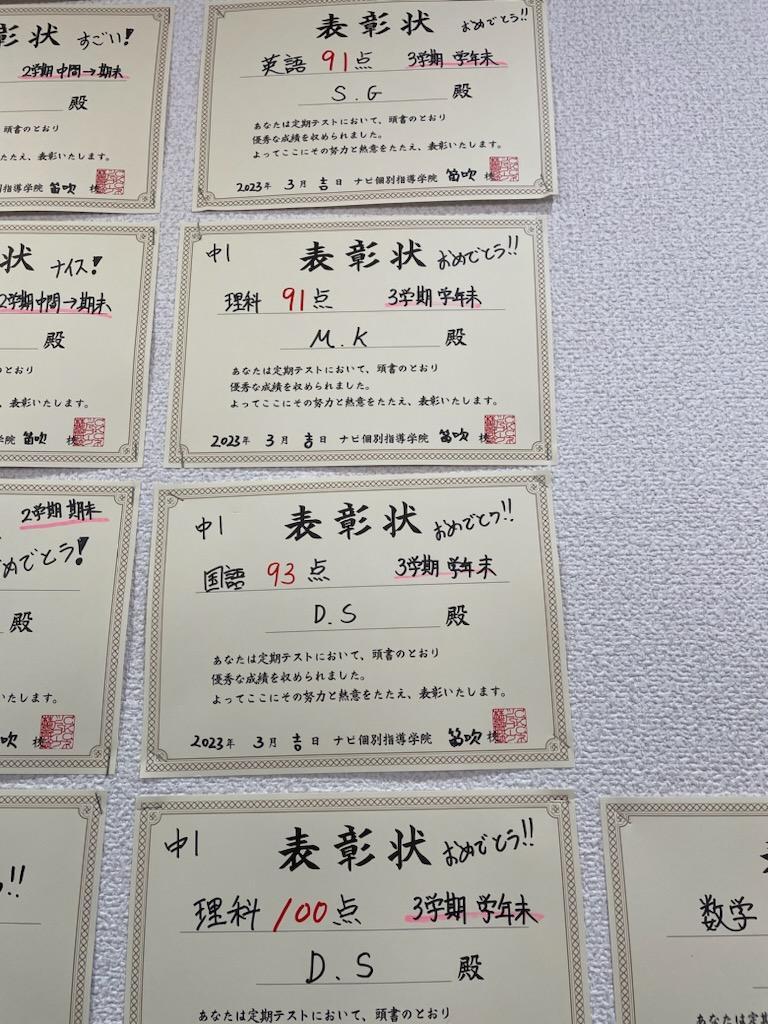 彰状 すごい!
2学期 中間→期末
殿
頭書のとおり
たたえ、表彰いたします。
別指導学院 笛吹 校
表彰状 おめでとう!!
英語 91点 3学期 学年末
S.G 殿
あなたは定期テストにおいて、頭書のとおり
優秀な成績を収められました。
よってここにその努力と熱意をたたえ、表彰いたします。
2023年 3月 吉日 ナビ個別指導学院 笛吹 校
状 ナイス!
2学期中間→期末
殿
のとおり
、表彰いたします。
学院 笛吹 校
中1 表彰状 おめでとう!!
理科 91点 3学期 学年末
M.K 殿
あなたは定期テストにおいて、頭書のとおり
優秀な成績を収められました。
よってここにその努力と熱意をたたえ、表彰いたします。
2023年 3月 吉日 ナビ個別指導学院 笛吹 校
2学期 期末
めでとう!
殿
いたします。
吹 校
中1 表彰状 おめでとう!!
国語 93点 3学期 学年末
D.S 殿
あなたは定期テストにおいて、頭書のとおり
優秀な成績を収められました。
よってここにその努力と熱意をたたえ、表彰いたします。
2023年 3月 吉日 ナビ個別指導学院 笛吹 校
!!
中1 表彰状 おめでとう!!
理科 100点 3学期 学年末
D.S 殿
あなたは定期テストにおいて、頭書のとおり
数学
あなたは定